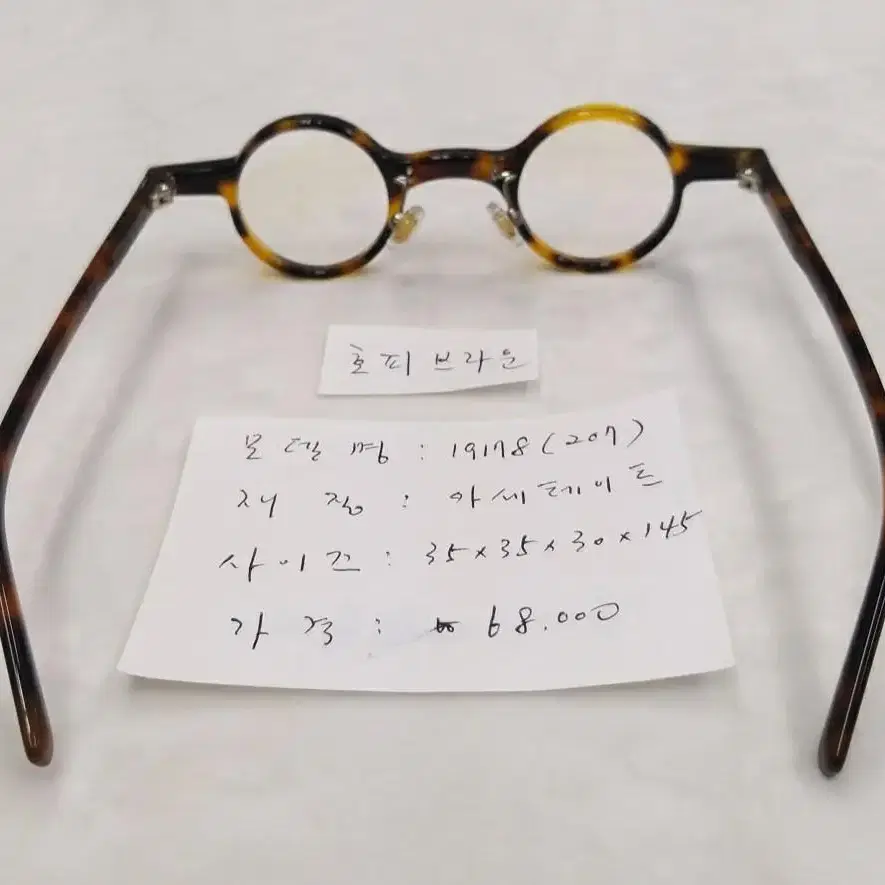 호피브라운
모델명 : 19178(207)
재질 : 아세테이트
사이즈 : 35x35x30x145
가격 : ₩68.000